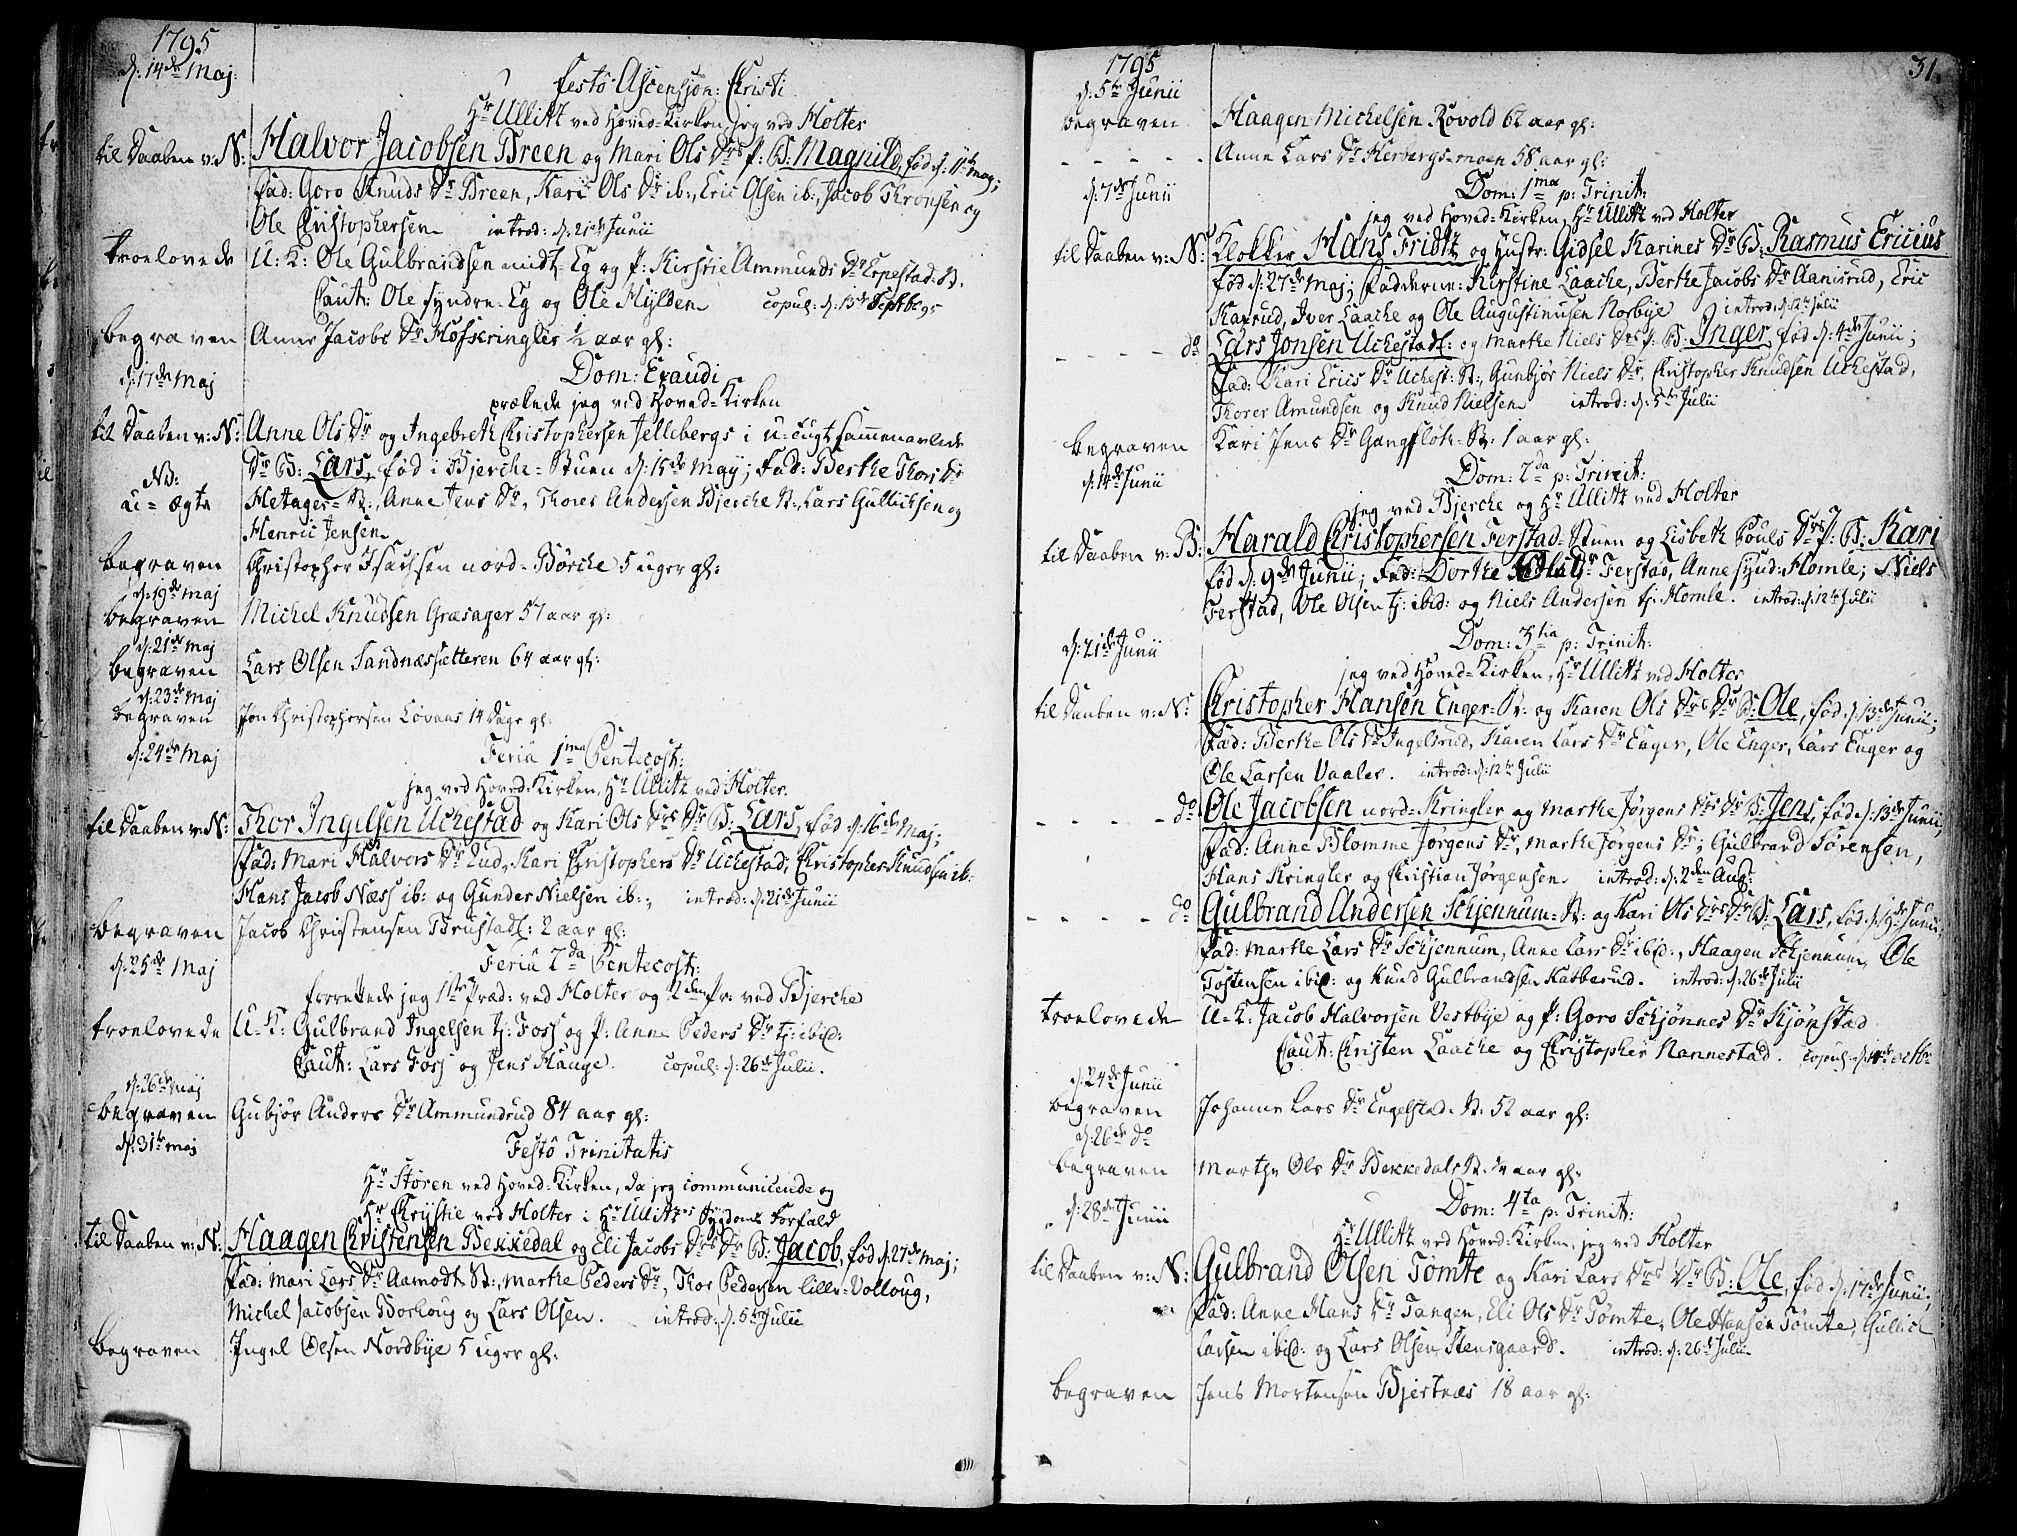 1795
d: 14de Maj:
Festo Ascensjon: Christi
Hr Ullitz ved Hoved-Kirken, jeg ved Holter
til Daaben v: N: Halvor Jacobsen Breen og Mari Ols Drs P: B: Magnild, fød d: 11te maj;
Fad: Goro Knuds Dr Breen, Kari Ols Dr ib:, Eric Olsen ib:, Jacob Thronsen og
Ole Christophersen introd: d: 21de Junii
troelovede U: K: Ole Gulbrandsen midt-Eg og P: Kirstie Ammunds Dr Lepestad: B.
Caut: Ole Syndre-Eg og Ole Hylden copul: d: 13de Septb 95
begraven Anne Jacobs Dr Hofskringler ½ aar gl:
d: 17de Maj Dom: Exaudi
prækede jeg ved Hoved-Kirken
til Daaben v: N: Anne Ols Dr og Ingebreth Christophersen Jellebergs i u-tugt sammenavlede
Dr B: Lars, fød i Bjerche-Stuen d: 15de May; Fad: Berthe Thors Dr
NB:
u-ægte Metager-St:, Anne Jens Dr, Thores Andersen Bjerche St:, Lars Gullichsen og
Henric Jensen
begraven Christopher Isachsen nord-Børche 5 uger gl:
d: 19de maj
begraven Michel Knudsen Græsager 57 aar gl:
d: 21de maj
begraven Lars Olsen Sandnæssætteren 64 aar gl:
d: 23de Maj
begraven Jon Christophersen Løvaas 14 dage gl:
d: 24de Maj Feria 1ma Pentecost:
jeg ved Hoved-Kirken, Hr Ullitz ved Holter.
til Daaben v: N: Thor Ingelsen Uchestad og Kari Ols Drs Dr B: Lars, fød d: 16de Maj;
Fad: Mari Halvors Dr Lud, Kari Christophers Dr Uchestad, Christopher Knudsen ib:
Hans Jacob Næss ib: og Gunder Nielsen ib:, introd: d: 21de Junii
begraven Jacob Christensen Brustad: 2 aar gl:
d: 25de Maj Feria 2da Pentecost:
forrettede jeg 11te Præd: ved Holter og 2den Pr: ved Bjerche
troelovede U-K: Gulbrand Ingelsen tj: Foss og P: Anne Peders Dr tj: ibid:
Caut: Lars Foss og Jens Hauge. copul: d: 26de Julii.
d: 26de maj
begraven Gubjør Anders Dr Ammundrud 84 aar gl:
d: 31te maj Festo Trinitatis
Hr Støren ved Hoved-Kirken, da jeg communicerede og
Hr Chrystie ved Holter i Hr Ullitz's Sygdoms Forfald
til Daaben v: N: Haagen Christensen Bekkedal og Eli Jacobs Drs Dr B: Jacob, fød d: 27de maj;
Fad: Mari Lars Dr Aamodt St:, Marthe Peders Dr, Thor Pedersen lille-Volloug,
Michel Jacobsen Borchoug og Lars Olsen. introd: d: 5te Julii
begraven Ingel Olsen Nordbye 5 uger gl:

1795 31.
d: 5te Junii
begraven Haagen Michelsen Rovold 62 aar gl:
- - - - - Anne Lars Dr Herbergs-moen 58 aar gl:
d: 7de Junii Dom: 1ma p: Trinit:
jeg ved Hoved-Kirken, Hr Ullitz ved Holter
til Daaben v: N: Klokker Hans Fridtz og Hustr: Gidsel Karines Dr B: Rasmus Ericius
fød d: 27de Maj; Fadderne: Kirstine Laache, Berthe Jacobs Dr Aanerud, Eric
Kaxrud, Iver Laache og Ole Augustinusen Norbye introd: d: 12te Julii
- - - - do Lars Jonsen Uchestad: og Marthe Niels Drs P: B: Inger, fød d: 4de Junii;
Fad: Kari Erics Dr Uchest: St:, Gunbjør Niels Dr, Christopher Knudsen Uchestad,
Thorer Amundsen og Knud Nielsen introd: d: 5te Julii
begraven Kari Jens Dr Gangfløt-St: 1 aar gl:
d: 14de Junii Dom: 2da p: Trinit:
jeg ved Bjerche og Hr Ullitz ved Holter
til Daaben v: B: Harald Christophersen Ferstad-Stuen og Lisbeth Pouls Drs P: B: Kari
fød d: 9de Junii; Fad: Dorthe Ols Dr Ferstad, Anne synd: Homle; Niels
Ferstad, Ole Olsen tj: ibid: og Niels Andersen tj: Homle. introd: d: 12te Julii
d: 21de Junii Dom: 3tia p: Trinit:
jeg ved Hoved-Kirken, Hr Ullitz ved Holter
til Daaben v: N: Christopher Hansen Enger-St: og Karen Ols Drs Dr B: Ole, fød d: 13de Junii;
Fad: Berthe Ols Dr Ingelsrud, Karen Lars Dr Enger, Ole Enger, Lars Enger og
Ole Larsen Vaaler. introd: d: 12te Julii
- - - - do Ole Jacobsen nord-Kringler og Marthe Jørgens Drs Dr B: Jens, fød d: 13de Junii,
Fad: Anne Blomme Jørgens Dr, Marthe Jørgens Dr; Gulbrand Sørensen,
Hans Kringler og Christian Jørgensen introd: d: 2den Aug:
- - - - do Gulbrand Andersen Schjennum-St: og Kari Ols Drs Dr B: Lars, fød d: 19de Junii,
Fad: Marthe Lars Dr Schjennum, Anne Lars Dr ibid:, Haagen Schjennum, Ole
Tostensen ibid: og Knud Gulbrandsen Kabberud. introd: d: 26de Julii
troelovede U-K: Jacob Halvorsen Vestbye og P: Goro Schjønnes Dr Kjønstad
Caut: Christen Laache og Christopher Nannestad. copul: d: octb:
d: 24de Junii
begraven Johanne Lars Dr Engelstad-St: 52 aar gl:
d: 26de do
begraven Marthe Ols Dr Bekkedals St: ¼ aar gl:
d: 28de Junii Dom: 4ta p: Trinit:
Hr Ullitz ved Hoved-Kirken, jeg ved Holter
til Daaben v: N: Gulbrand Olsen Tømte og Kari Lars Drs Dr B: Ole, fød d: 17de Junii;
Fad: Anne Hans Dr Tangen, Eli Ols Dr Tømte, Ole Hansen Tømte, Gullich
Larsen ibid: og Lars Olsen Stensgaard. introd: d: 26de Julii
begraven Jens Mortensen Bjertnæs 18 aar gl: